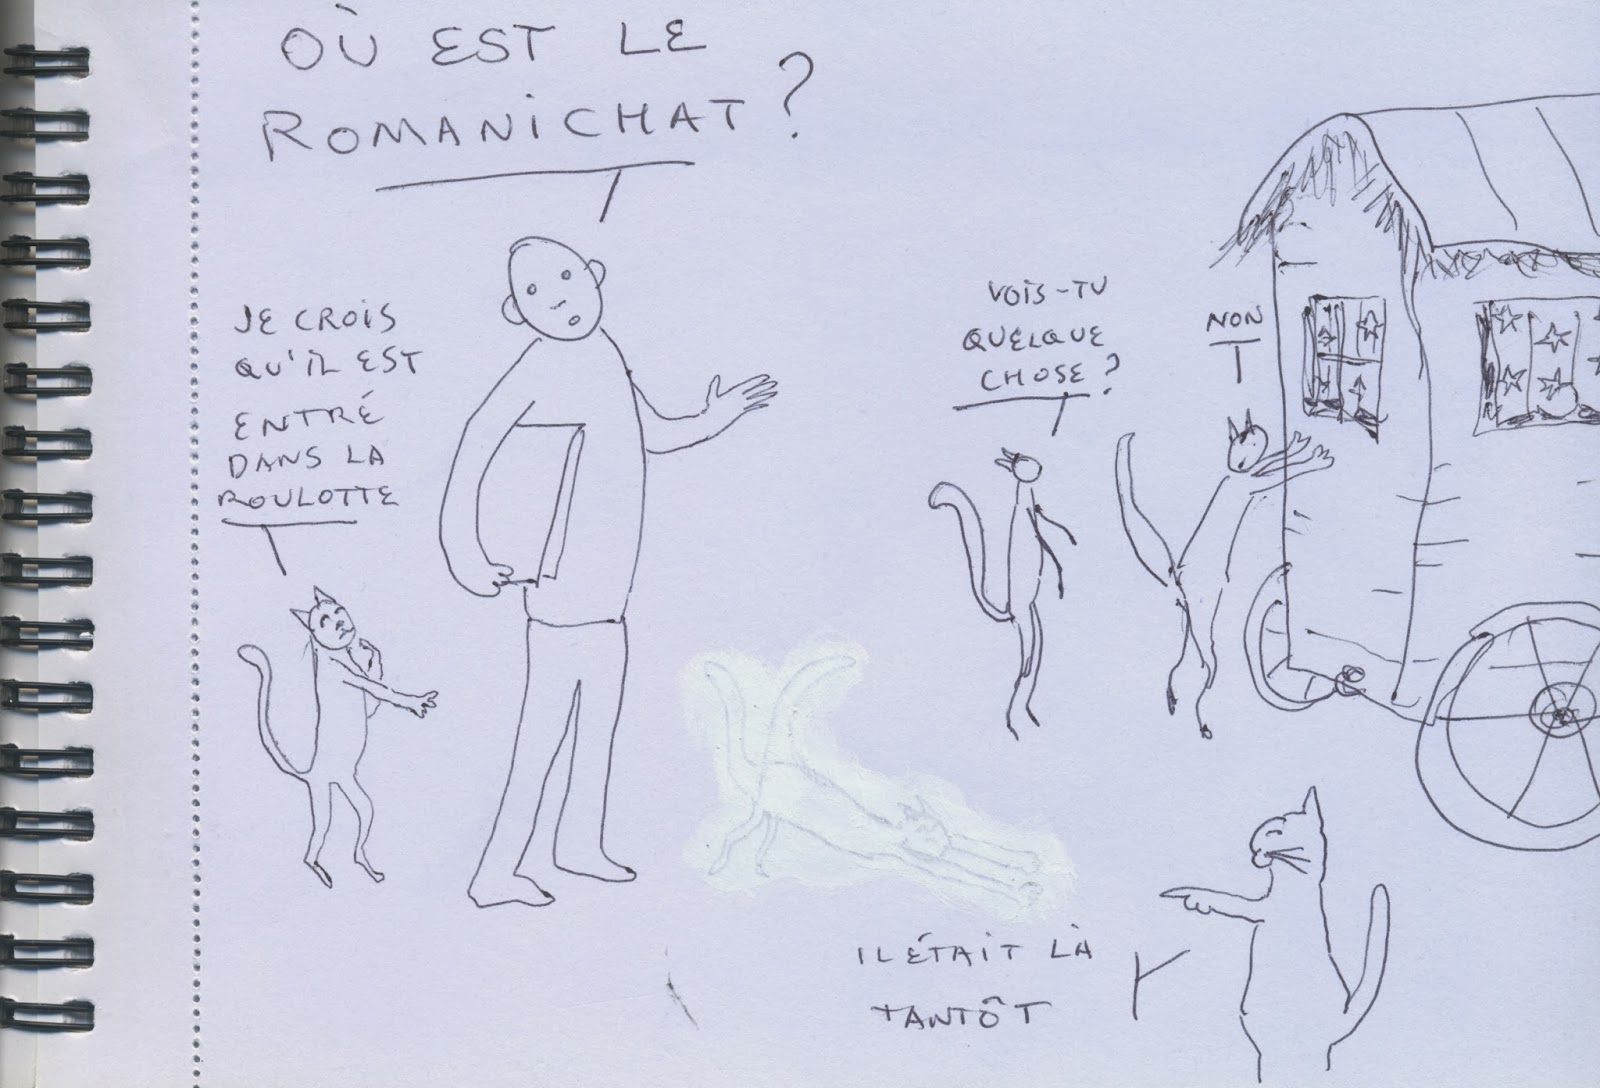 OÙ EST LE
ROMANICHAT?
JE CROIS
QU'IL EST
ENTRÉ
DANS LA
ROULOTTE
VOIS-TU
QUELQUE
CHOSE?
NON
IL ÉTAIT LÀ
TANTÔT